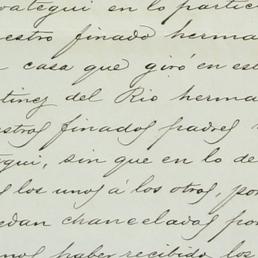 oategui en lo partic
estro finado herma
casa que giró en es
tinez del Rio herma
estros finados padres
egui, sin que en lo de
s los unos á los otros, po
edan chancelados po
nos haber recibido los